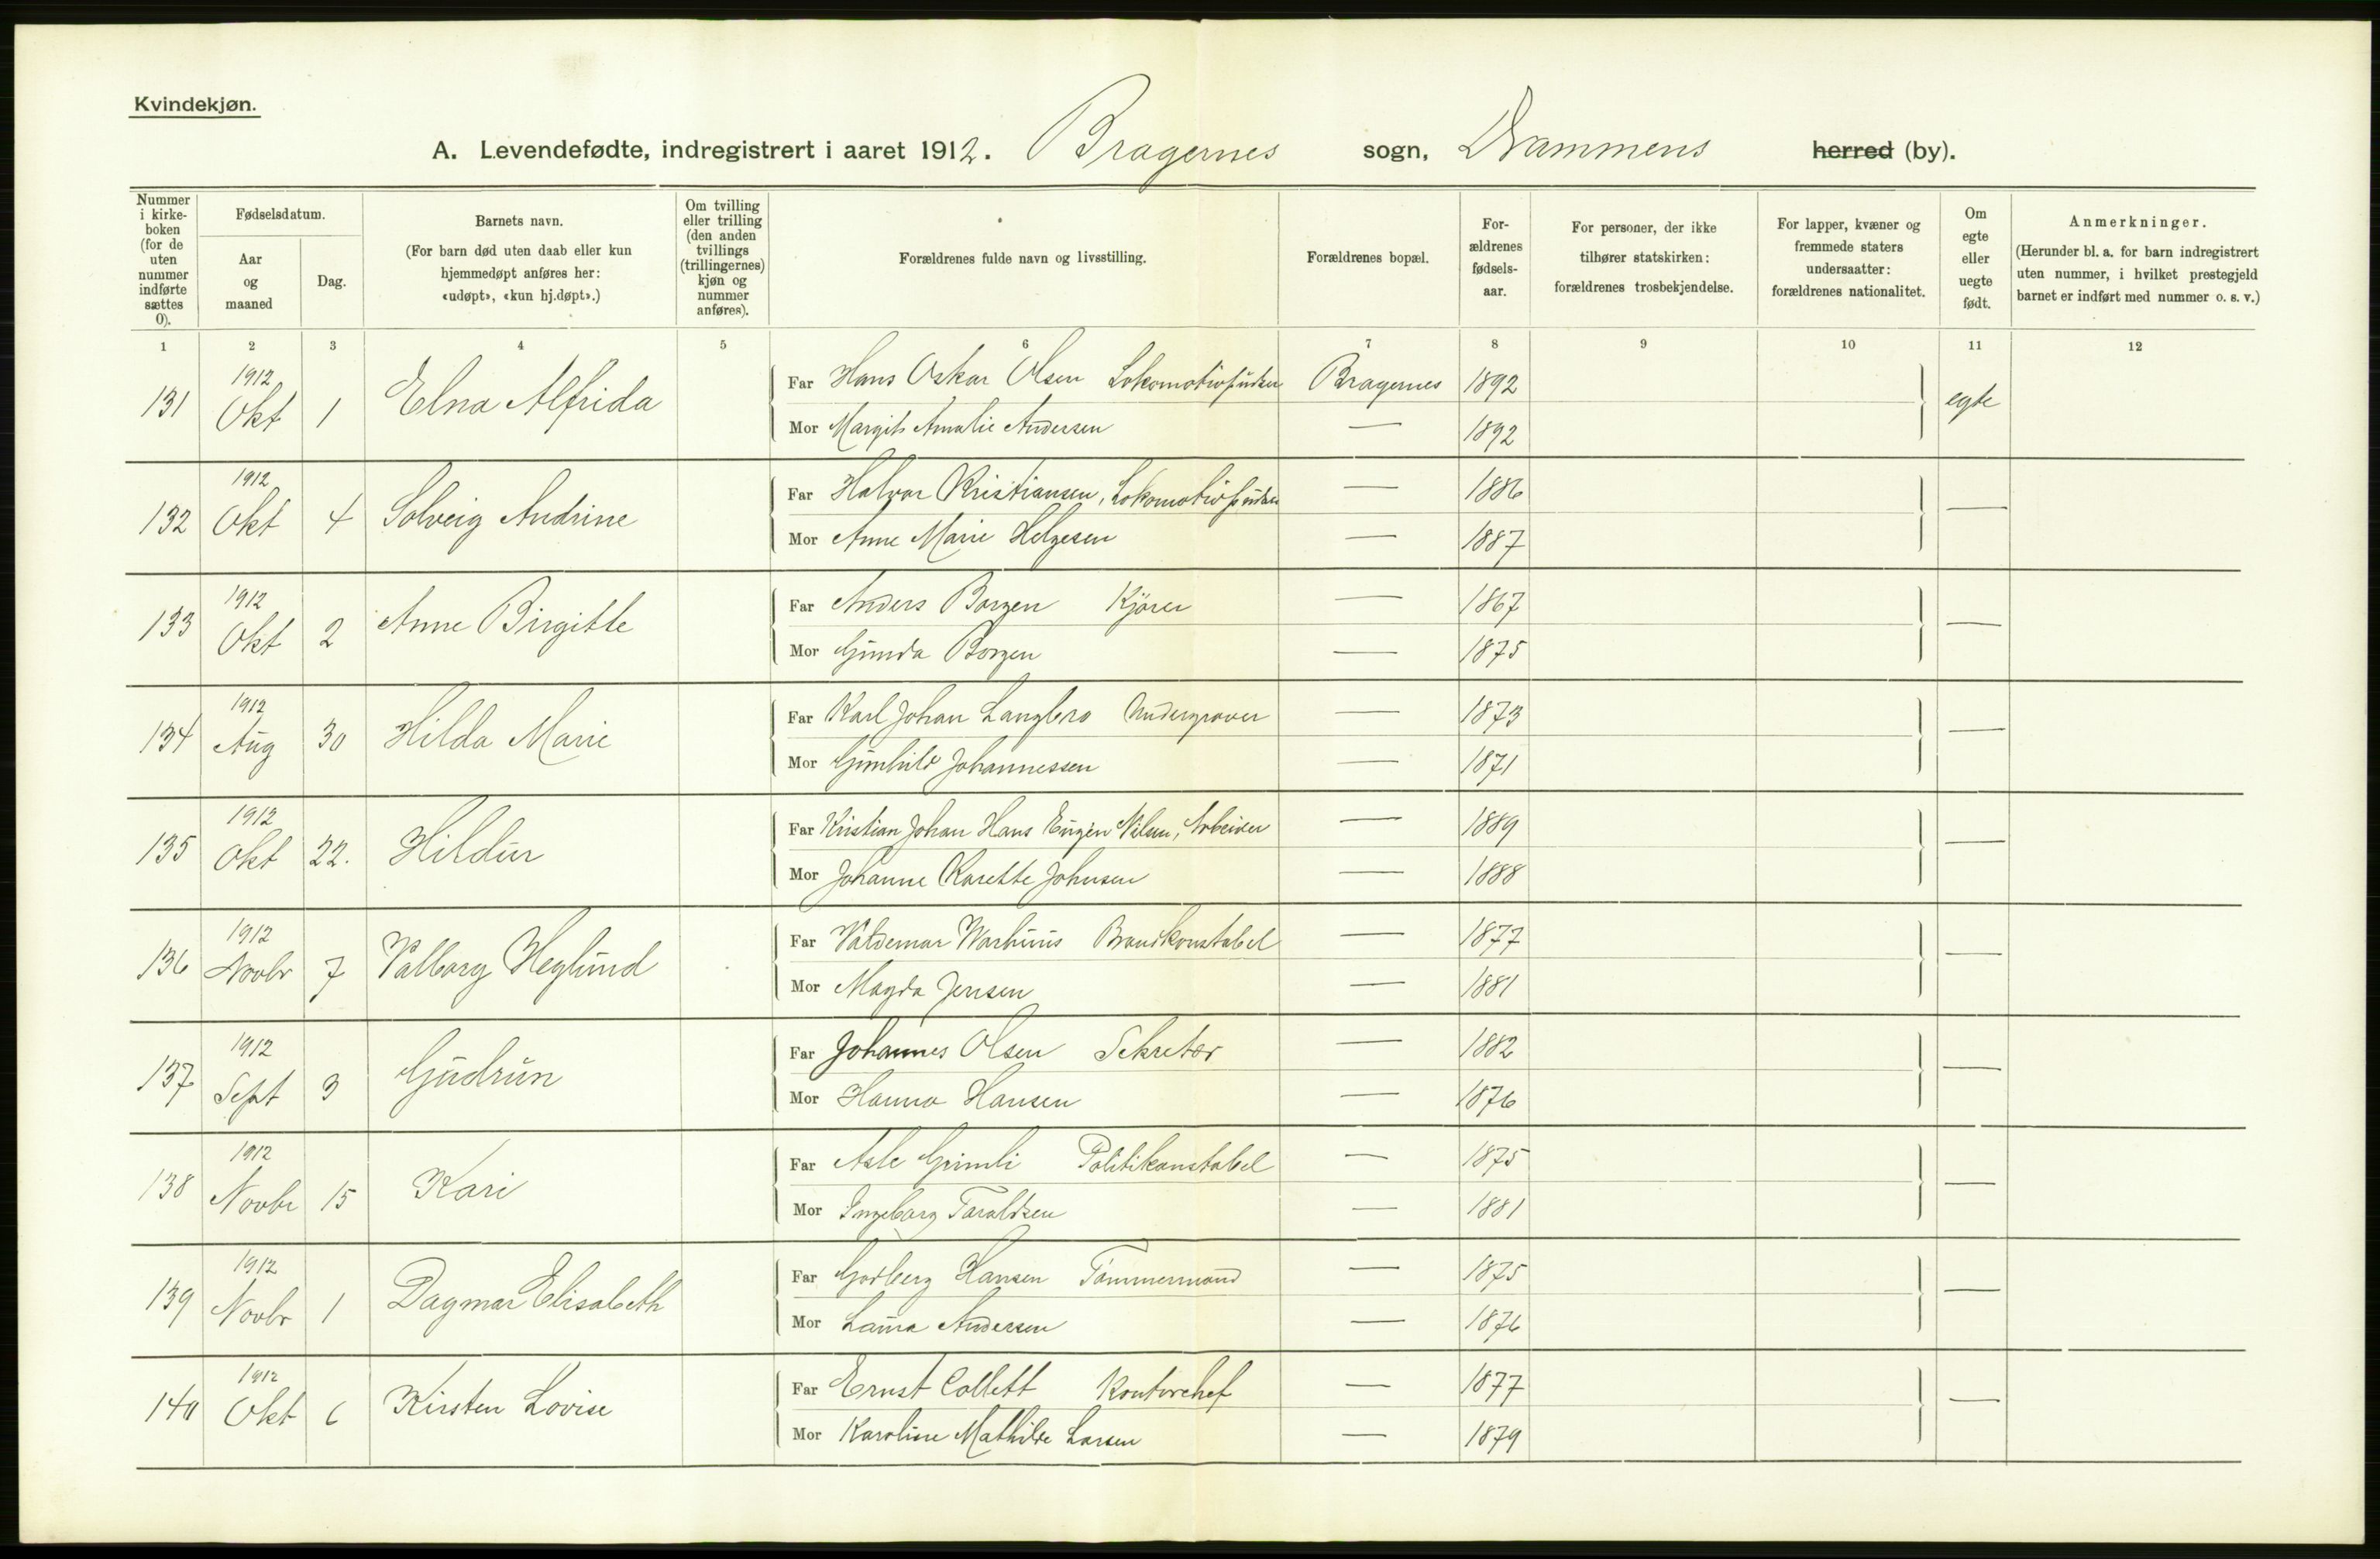 Kvindekjøn.
A. Levendefødte, indregistrert i aaret 1912. Bragernes sogn, Drammens herred (by).
Nummer i kirke-boken (for de uten nummer indførte sættes 0).
Fødselsdatum.
Aar og maaned
Dag.
Barnets navn.
(For barn død uten daab eller kun hjemmedøpt anføres her: «udøpt», «kun hj.døpt».)
Om tvilling eller trilling (den anden tvillings (trillingernes) kjøn og nummer anføres).
Forældrenes fulde navn og livsstilling.
Forældrenes bopæl.
For-ældrenes fødsels-aar.
For personer, der ikke tilhører statskirken: forældrenes trosbekjendelse.
For lapper, kvæner og fremmede staters undersaatter: forældrenes nationalitet.
Om egte eller uegte født.
Anmerkninger.
(Herunder bl. a. for barn indregistrert uten nummer, i hvilket prestegjeld barnet er indført med nummer o. s. v.)
1 2 3 4 5 6 7 8 9 10 11 12
131 1912 Okt 1 Elna Alfrida Far Hans Oskar Olsen Lokomotivpudser Bragernes 1892 egte
Mor Margit Amalie Andersen — 1892
132 1912 Okt 4 Solveig Andrine Far Halvor Kristiansen, Lokomotivpudser — 1886 —
Mor Anne Marie Helgesen — 1887
133 1912 Okt 2 Anne Birgitte Far Anders Borgen Kjører — 1867 —
Mor Gunda Borgen — 1875
134 1912 Aug 30 Hilda Marie Far Karl Johan Langbro — 1873 —
Mor Gunhild Johannessen — 1871
135 1912 Okt 22. Hildur Far Kristian Johan Hans Eugen Nilsen, Arbeider — 1889 —
Mor Johanne Karette Johnsen — 1888
136 1912 Novbr 7 Valborg Heglund Far Valdemar Warhuus Brandkonstabel — 1877 —
Mor Magda Jensen — 1881
137 1912 Sept 3 Gudrun Far Johannes Olsen Sekretær — 1882 —
Mor Hanna Hansen — 1876
138 1912 Novbr 15 Kari Far Asle Grimli Politikonstabel — 1875 —
Mor Ingeborg Taraldsen — 1881
139 1912 Novbr 1 Dagmar Elisabeth Far Godberg Hansen Tømmermand — 1875 —
Mor Laura Andersen — 1876
140 1912 Okt 6 Kirsten Lovise Far Ernst Collett Kontorchef — 1877 —
Mor Karoline Mathilde Larsen — 1879